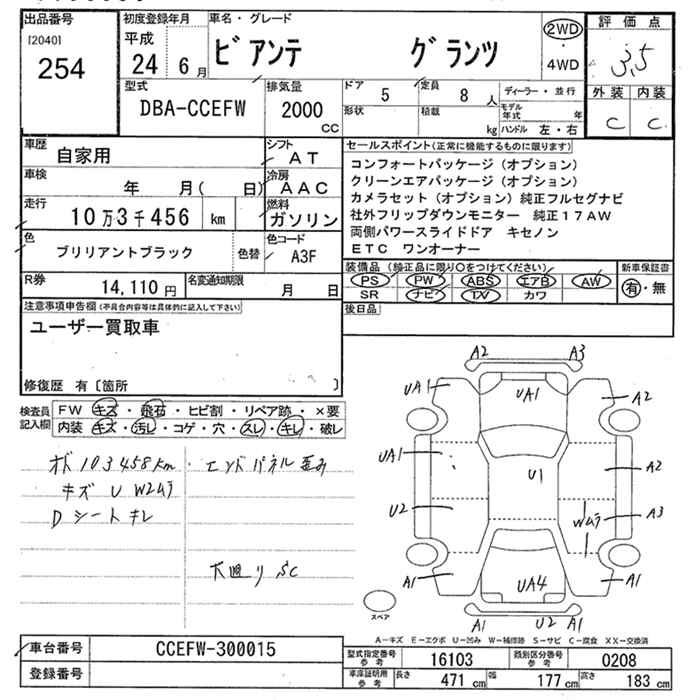 出品番号 初度登録年月 車名・グレード 評価点
[2040] 平成 2WD
254 24 6月 ビアンテ グランツ ・ 3.5
4WD
型式 排気量 ドア 5 定員 8人 ディーラー・並行 外装 内装
DBA-CCEFW 2000cc 形状 積載 kg モデル年式 年 C C
ハンドル 左・右
車歴 自家用 シフト AT セールスポイント(正常に機能するものに限ります)
車検 年 月( 日) 冷房 AAC コンフォートパッケージ(オプション)
クリーンエアパッケージ(オプション)
走行 10万3千456 km 燃料 ガソリン カメラセット(オプション)純正フルセグナビ
社外フリップダウンモニター 純正17AW
色 ブリリアントブラック 色替 色コード A3F 両側パワースライドドア キセノン
ETC ワンオーナー
R券 14,110円 名変通知期限 月 日 装備品(純正品に限り○をつけてください) 新車保証書
PS PW ABS エアB AW 有・無
SR ナビ TV カワ
注意事項申告欄(不具合内容等は具体的に記入して下さい) 後日品
ユーザー買取車
修復歴 有〔箇所 〕
検査員記入欄 FW キズ・飛石・ヒビ割・リペア跡・×要
内装 キズ・汚レ・コゲ・穴・スレ・キレ・破レ
オド103458km エンドパネル歪み
キズ U Wムラ
Dシートキレ
下廻りSC
A2 A3
UA1 UA1 A2
UA1 U1 A2
U2 Wムラ A3
A1 UA4 A1
A1 U2 A1
スペア
A-キズ E-エクボ U-凹み W-補修跡 S-サビ C-腐食 XX-交換済
車台番号 CCEFW-300015
登録番号
型式指定番号 参考 16103 類別区分番号 参考 0208
車庫証明用 参考 長さ 471 cm 幅 177 cm 高さ 183 cm